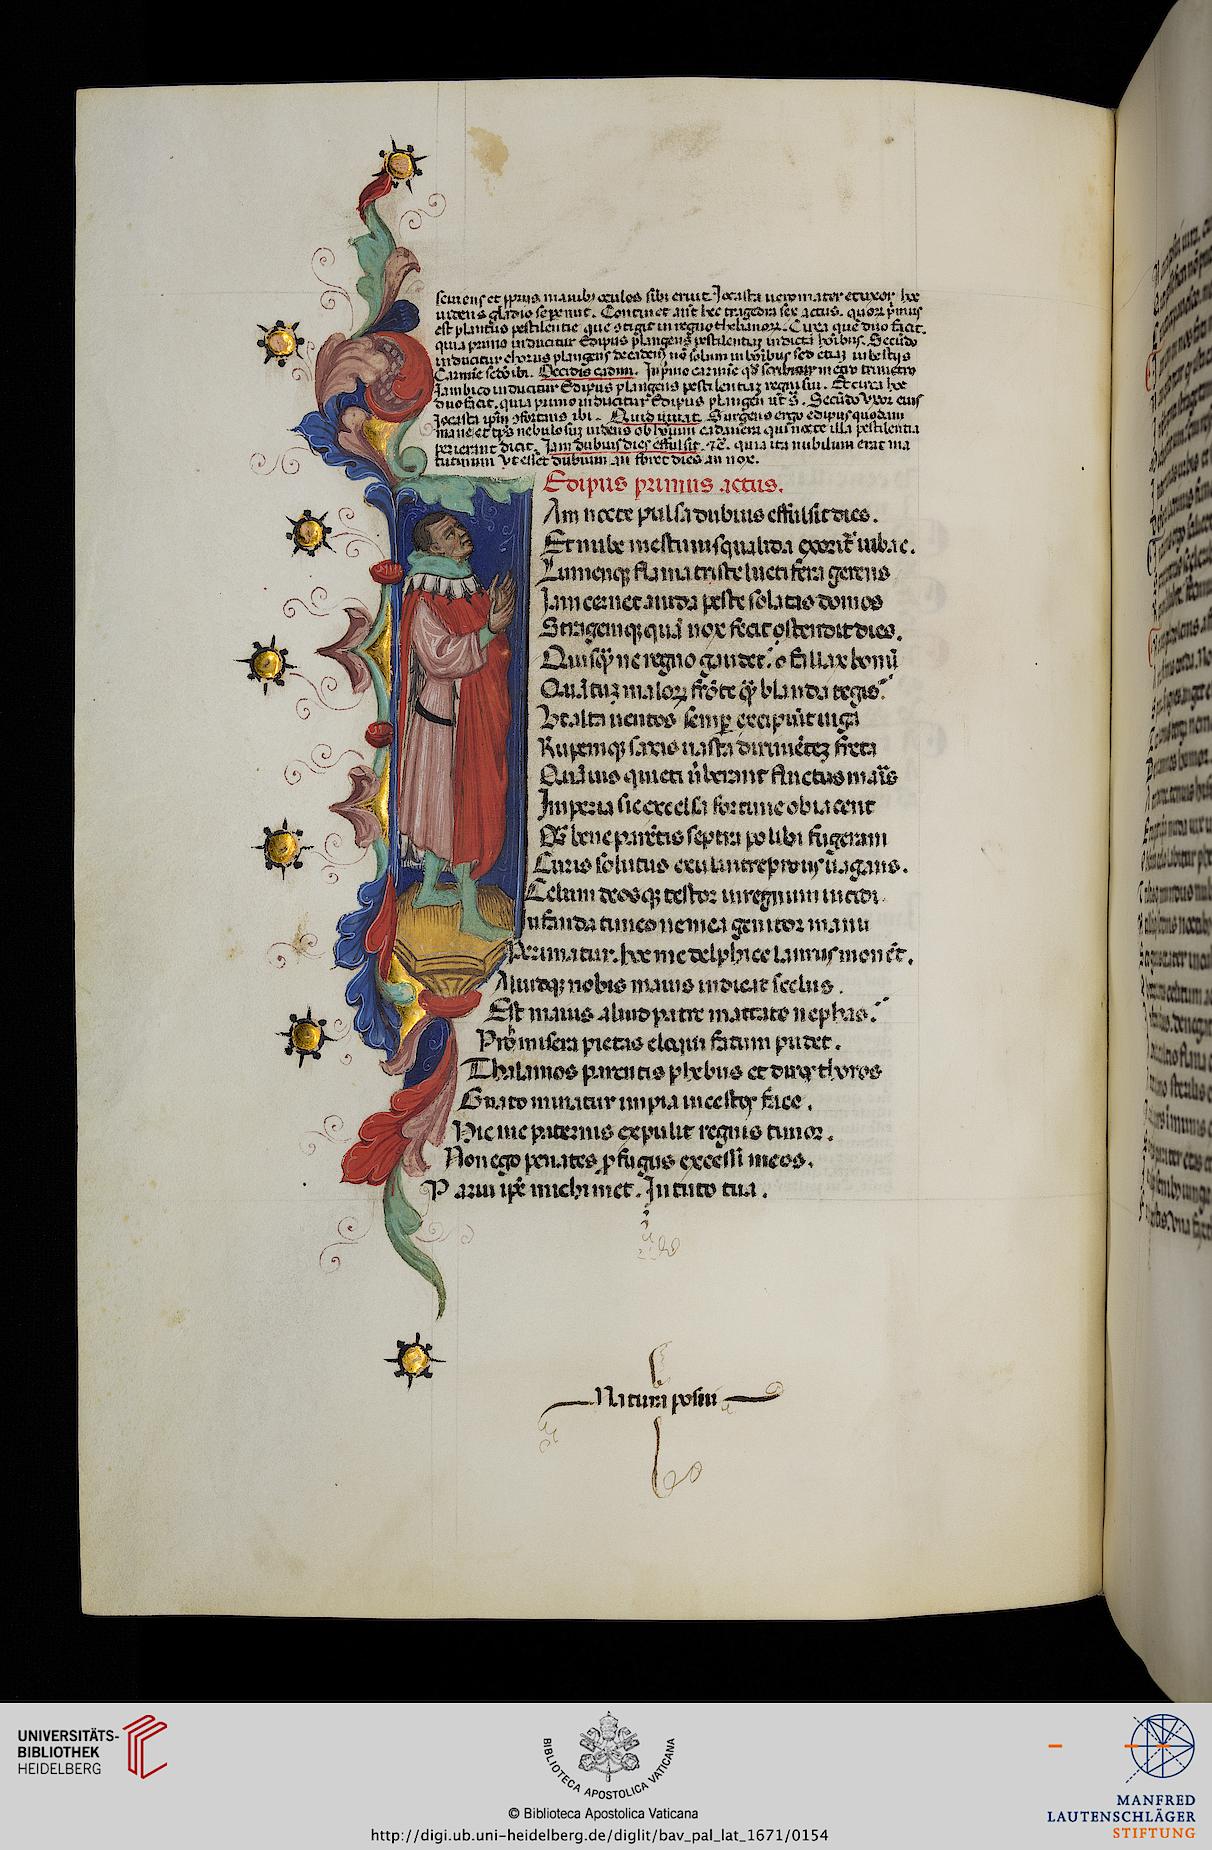 seuiens et ꝓpriis manibꝫ oculos sibi eruit. Jocasta uero mater et uxor hoc
uidens gladio se peremit. Continet aũt hec tragedia sex actus. quoꝝ p̃mus
est planctus pestilentie que ↄtigit in regno thebanoꝝ. Circa quẽ duo facit.
quia primo inducitur Edipus plangens pestilentiaꝫ in dictis hõibus. Secũdo
inducitur chorus plangens de eadem nõ solum in hõibus sed etiaꝫ in bestiis
Carmĩe secũdo ibi. Occidis eadem. In p̃mo carmĩe qd̃ scribitur metro trimetro
Jambico inducitur Edipus plangens pestilentiaꝫ regni sui. Et circa hoc
duo facit. quia primo inducitur Edipus plangen̄ ut s̃. Secũdo vxor eius
Jocasta ip̃m ↄfortans ibi. Quid iuuat. Surgens ergo edipus quodam
mane et tꝑs nebulosuꝫ uidens ob hoĩum cadauera qui nocte illa pestilentia
perierant dicit. Jam dubius dies effulsit ⁊c̃. quia ita nubilum erat ma
tutinum vt esset dubium an foret dies an nox.
Edipus primus actus.
Am nocte pulsa dubius effulsit dies.
Et nube mestum squalida exorit᷑ iubar.
Lumenqꝫ flama triste luctifera gerens
Jam cernet auida peste solatas domos
Stragemqꝫ quã nox fecit ostendit dies.
Quisq̃ꝫ ne regno gaudet? o fallax bonũ
Quãtuꝫ maloꝝ frõte q̃ꝫ blanda tegis?
Vt alta uentos semꝑ excipiũt iuga
Rupemqꝫ saxis uasta dirimẽteꝫ freta
Quãuis quieti ũberant fluctus maris
Jmperia sic excelsa fortune obiacent
Qͣꝫ bene parẽtis septra polibi fugeram
Curis solutus exul intrepidus uagans.
Celum deosqꝫ testor in regnum incidi
Jnfanda timeo ne mea genitor manu
Perimatur. hoc me delphice laurus monẽt.
Aliudqꝫ nobis maius indicat scelus.
Est maius aliud patre mactato nephas?
Proh misera pietas eloqui fatum pudet.
Thalamos parentis phebus et diros thoros
Gnato minatur impia incestos face.
Hic me paternis expulit regnis timor.
Non ego penates ꝓfugus excessi meos.
Parui ip̃e michimet. In tuto tua.
Natura posui
UNIVERSITÄTS-
BIBLIOTHEK
HEIDELBERG
BIBLIOTECA APOSTOLICA VATICANA
© Biblioteca Apostolica Vaticana
http://digi.ub.uni-heidelberg.de/diglit/bav_pal_lat_1671/0154
MANFRED
LAUTENSCHLÄGER
STIFTUNG